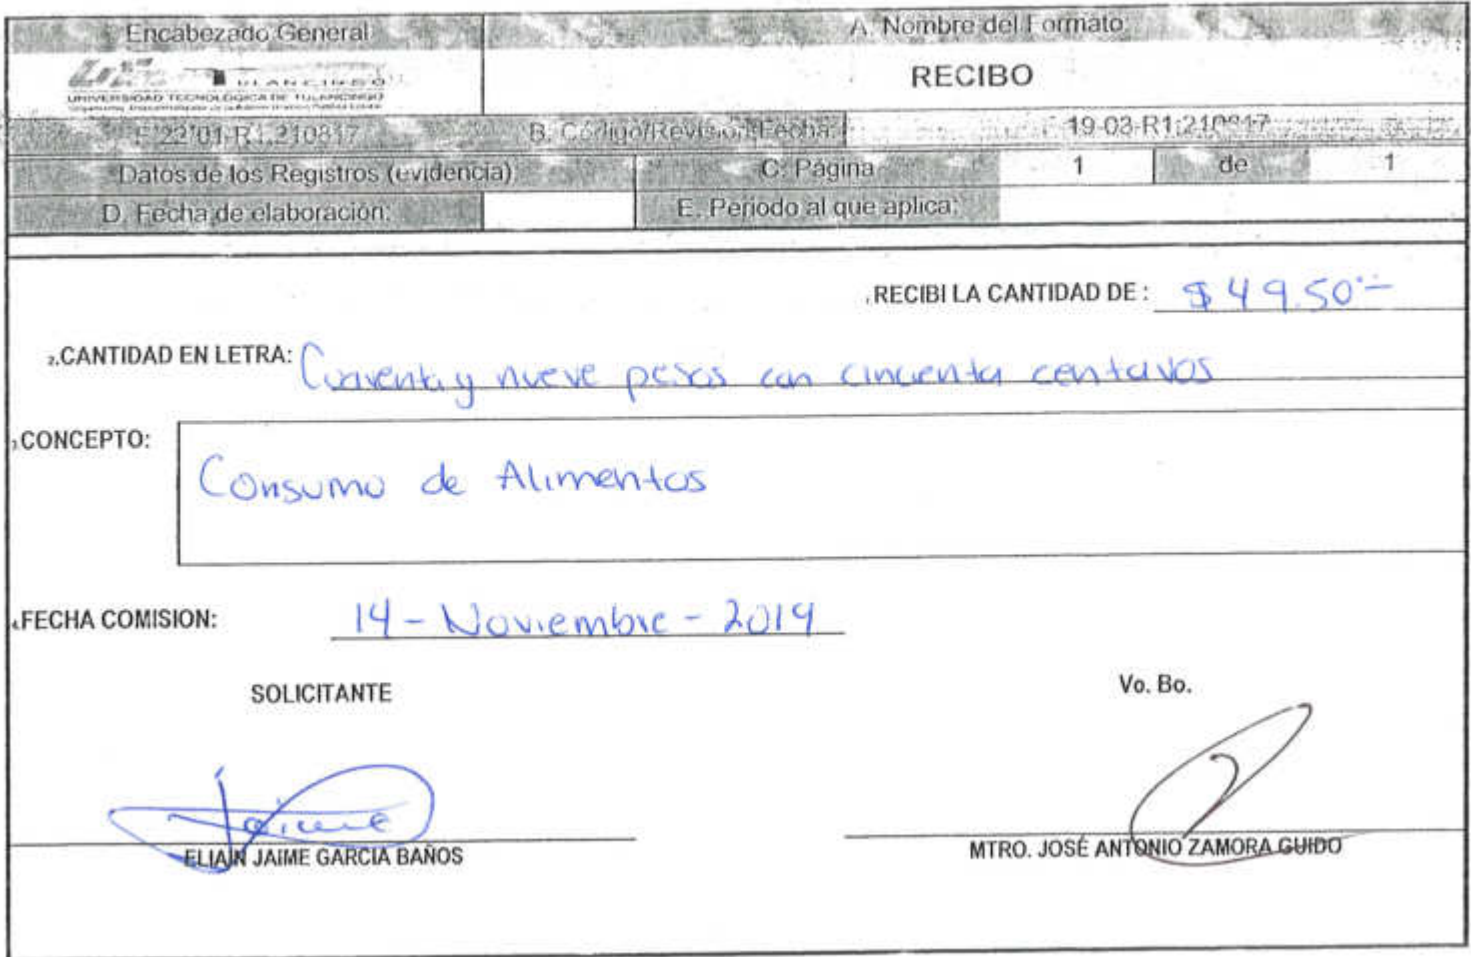 Encabezado General
A. Nombre del Formato:
TULANCINGO
UNIVERSIDAD TECNOLÓGICA DE TULANCINGO
RECIBO
22-01-R1;210817
B. Código/Revisión;Fecha:
19-03-R1;210817
Datos de los Registros (evidencia)
C. Página
1
de
1
D. Fecha de elaboración:
E. Periodo al que aplica:
1.RECIBI LA CANTIDAD DE : $49.50.-
2.CANTIDAD EN LETRA: Cuarenta y nueve pesos con cincuenta centavos
3.CONCEPTO:
Consumo de Alimentos
4.FECHA COMISION: 14 - Noviembre - 2019
SOLICITANTE
Vo. Bo.
Jaime
ELIAIN JAIME GARCIA BAÑOS
MTRO. JOSÉ ANTONIO ZAMORA GUIDO